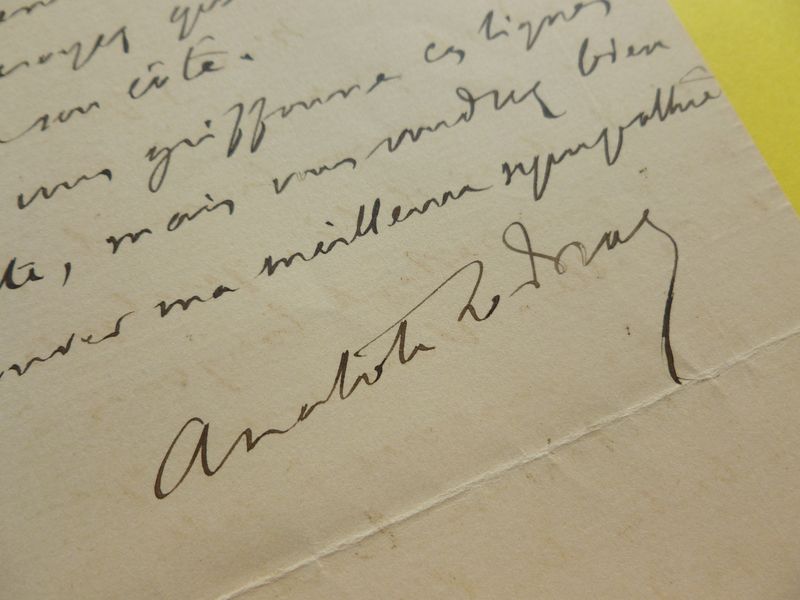 son côté.
vous griffonne ces lignes
mais vous voudrez bien
ma meilleure sympathie
Anatole Le Braz